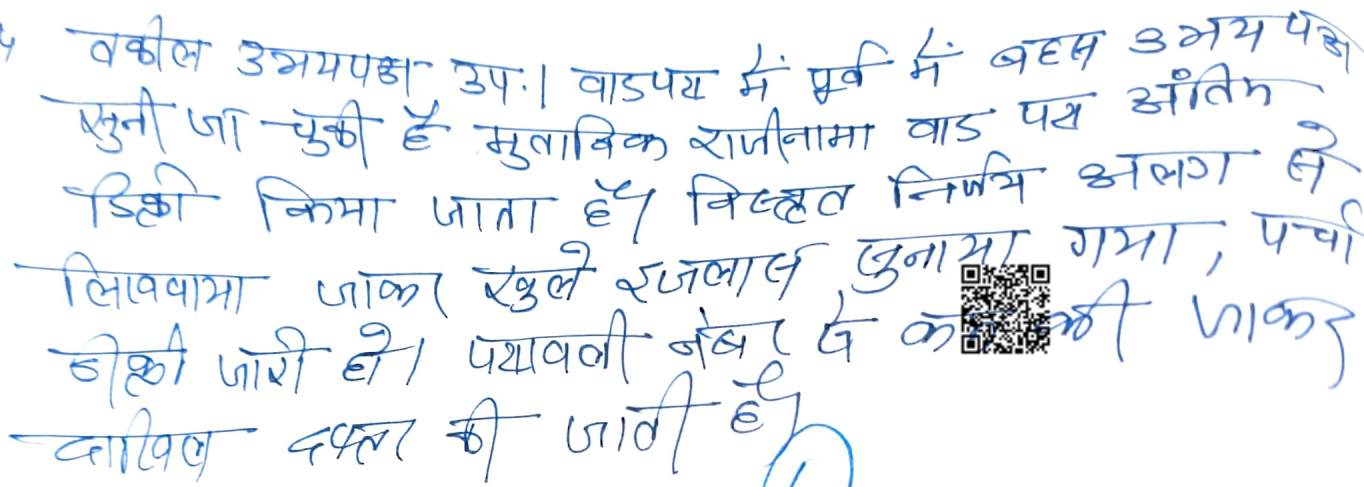 वकील उभयपक्ष उप.। वादपत्र में पूर्व में बहस उभयपक्ष
सुनी जा चुकी है मुताबिक राजीनामा वाद पत्र अंतिम
डिक्री किया जाता है। विस्तृत निर्णय अलग से
लिखवाया जाकर खुले इजलास सुनाया गया, पर्चा
डीक्री जारी हो। पत्रावली नंबर से की जाकर
दाखिल दफ्तर की जाती है।